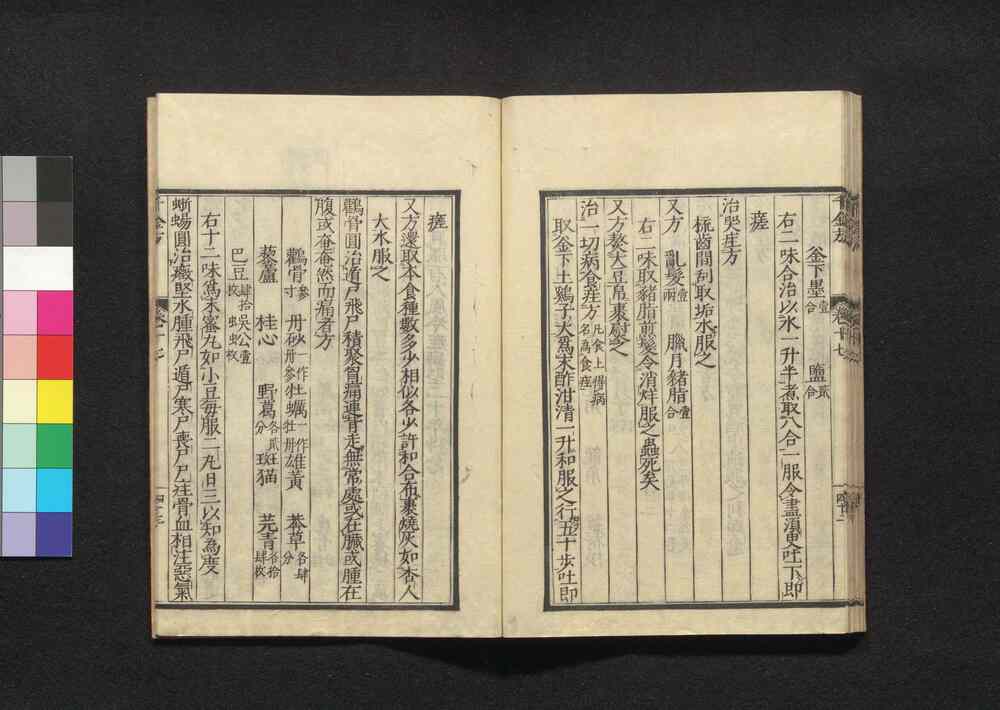 釜下墨壹合 鹽貳合
右二味合治以水一升半煮取八合一服令盡須臾吐下即
瘥
治哭疰方
梳齒間刮取垢水服之
又方 亂髮壹兩 臘月豬脂壹合
右二味取豬脂煎髮令消烊服之蟲死矣
又方熬大豆帛裹熨之
治一切病食疰方凡食上得病名為食疰
取釜下土雞子大為末酢泔清一升和服之行五十步吐即
瘥
又方還取本食種數多少相似各少許和合布裹燒灰如杏人
大水服之
鸛骨圓治遁尸飛尸積聚胷痛連背走無常處或在臟或腫在
腹或奄奄然而痛者方
鸛骨參寸 丹砂一作丹參 牡蠣一作牡丹 雄黃 莽草各肆分
藜蘆 桂心 野葛各貳分 斑猫 芫青各拾肆枚
巴豆肆拾枚 吳公壹枚
右十二味為末蜜丸如小豆每服二丸日三以知為度
蜥蜴圓治癥堅水腫飛尸遁尸寒尸喪尸尸注骨血相注惡氣
千金方
卷十七
四十二